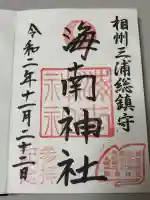 相州三浦総鎮守
海南神社
令和二年十一月二十二日